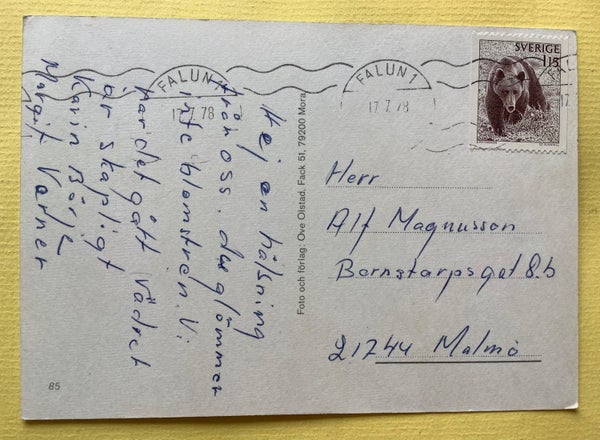 Hej en hälsning
från oss. du glömmer
inte blomstren. Vi
har det gått Vädret
är skapligt
Karin Börje
Margit Verner
Foto och förlag: Ove Olstad. Fack 51, 79200 Mora
85
FALUN 1
17.7.78
FALUN 1
17.7.78
FALUN
17.
SVERIGE
115
Herr
Alf Magnusson
Bornstarpsgat 8.b
21744 Malmö